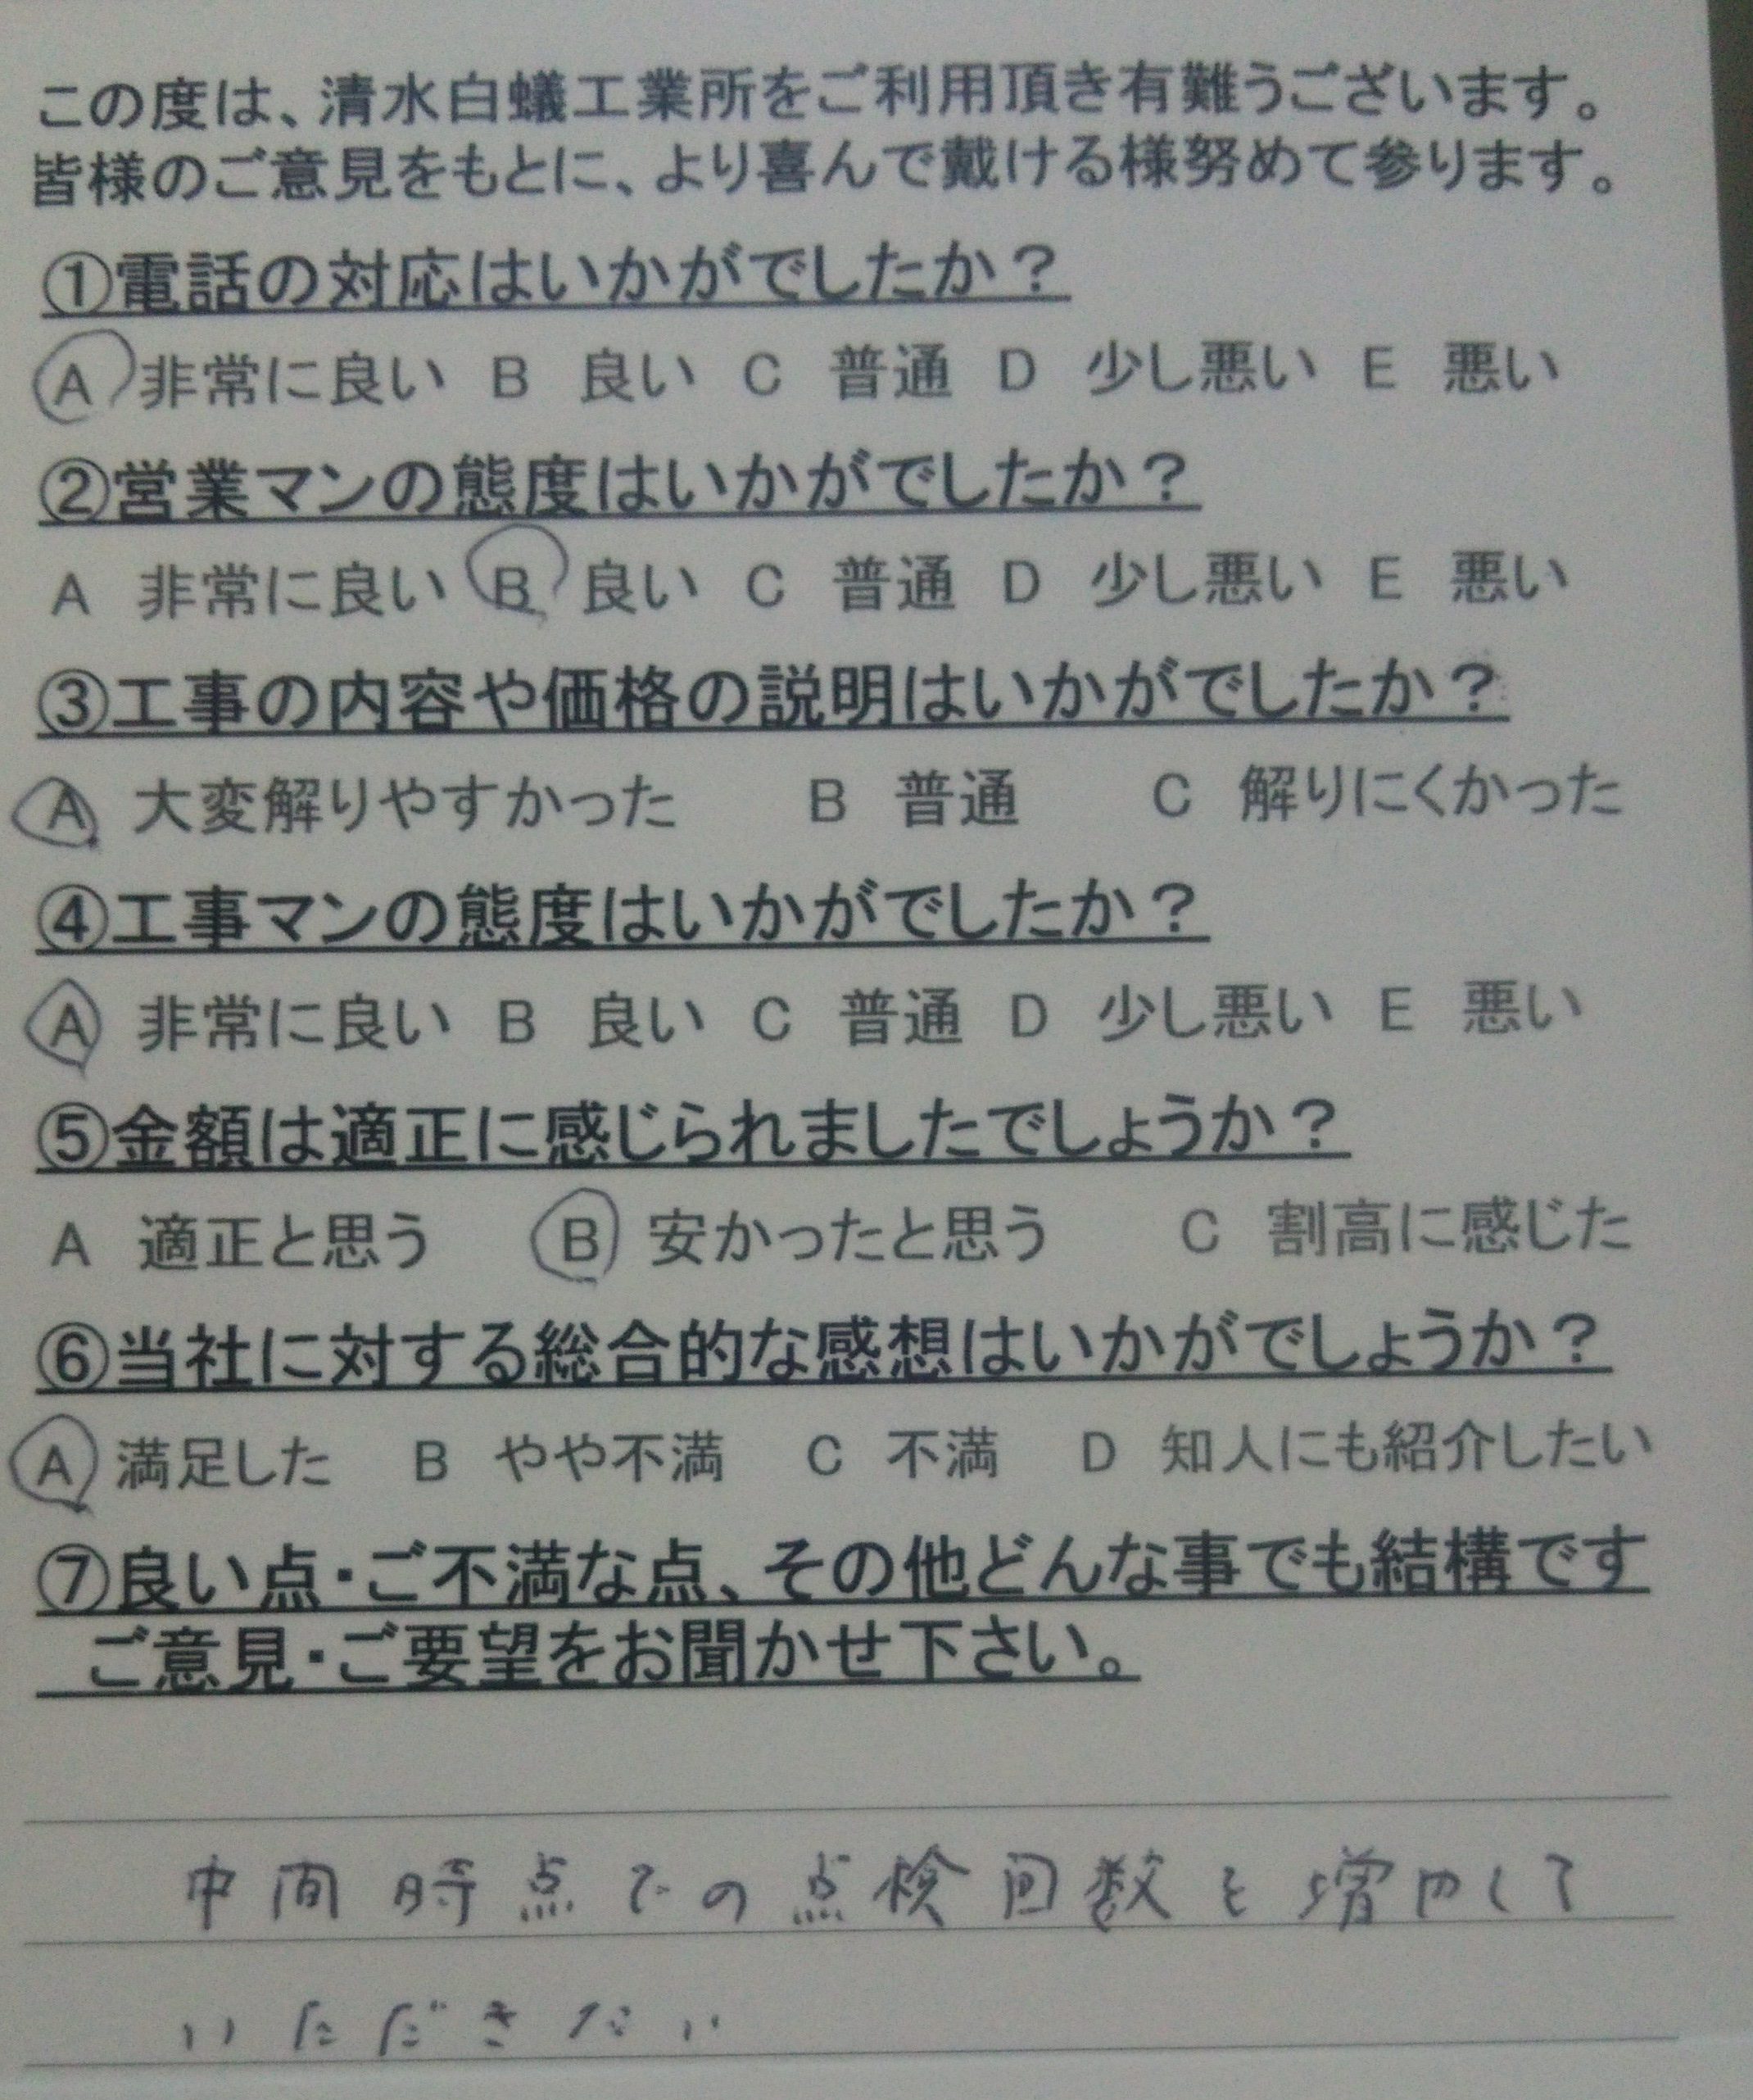 この度は、清水白蟻工業所をご利用頂き有難うございます。
皆様のご意見をもとに、より喜んで戴ける様努めて参ります。
①電話の対応はいかがでしたか？
A 非常に良い B 良い C 普通 D 少し悪い E 悪い
②営業マンの態度はいかがでしたか？
A 非常に良い B 良い C 普通 D 少し悪い E 悪い
③工事の内容や価格の説明はいかがでしたか？
A 大変解りやすかった B 普通 C 解りにくかった
④工事マンの態度はいかがでしたか？
A 非常に良い B 良い C 普通 D 少し悪い E 悪い
⑤金額は適正に感じられましたでしょうか？
A 適正と思う B 安かったと思う C 割高に感じた
⑥当社に対する総合的な感想はいかがでしょうか？
A 満足した B やや不満 C 不満 D 知人にも紹介したい
⑦良い点・ご不満な点、その他どんな事でも結構です
ご意見・ご要望をお聞かせ下さい。
中間時点での点検回数を増やして
いただきたい